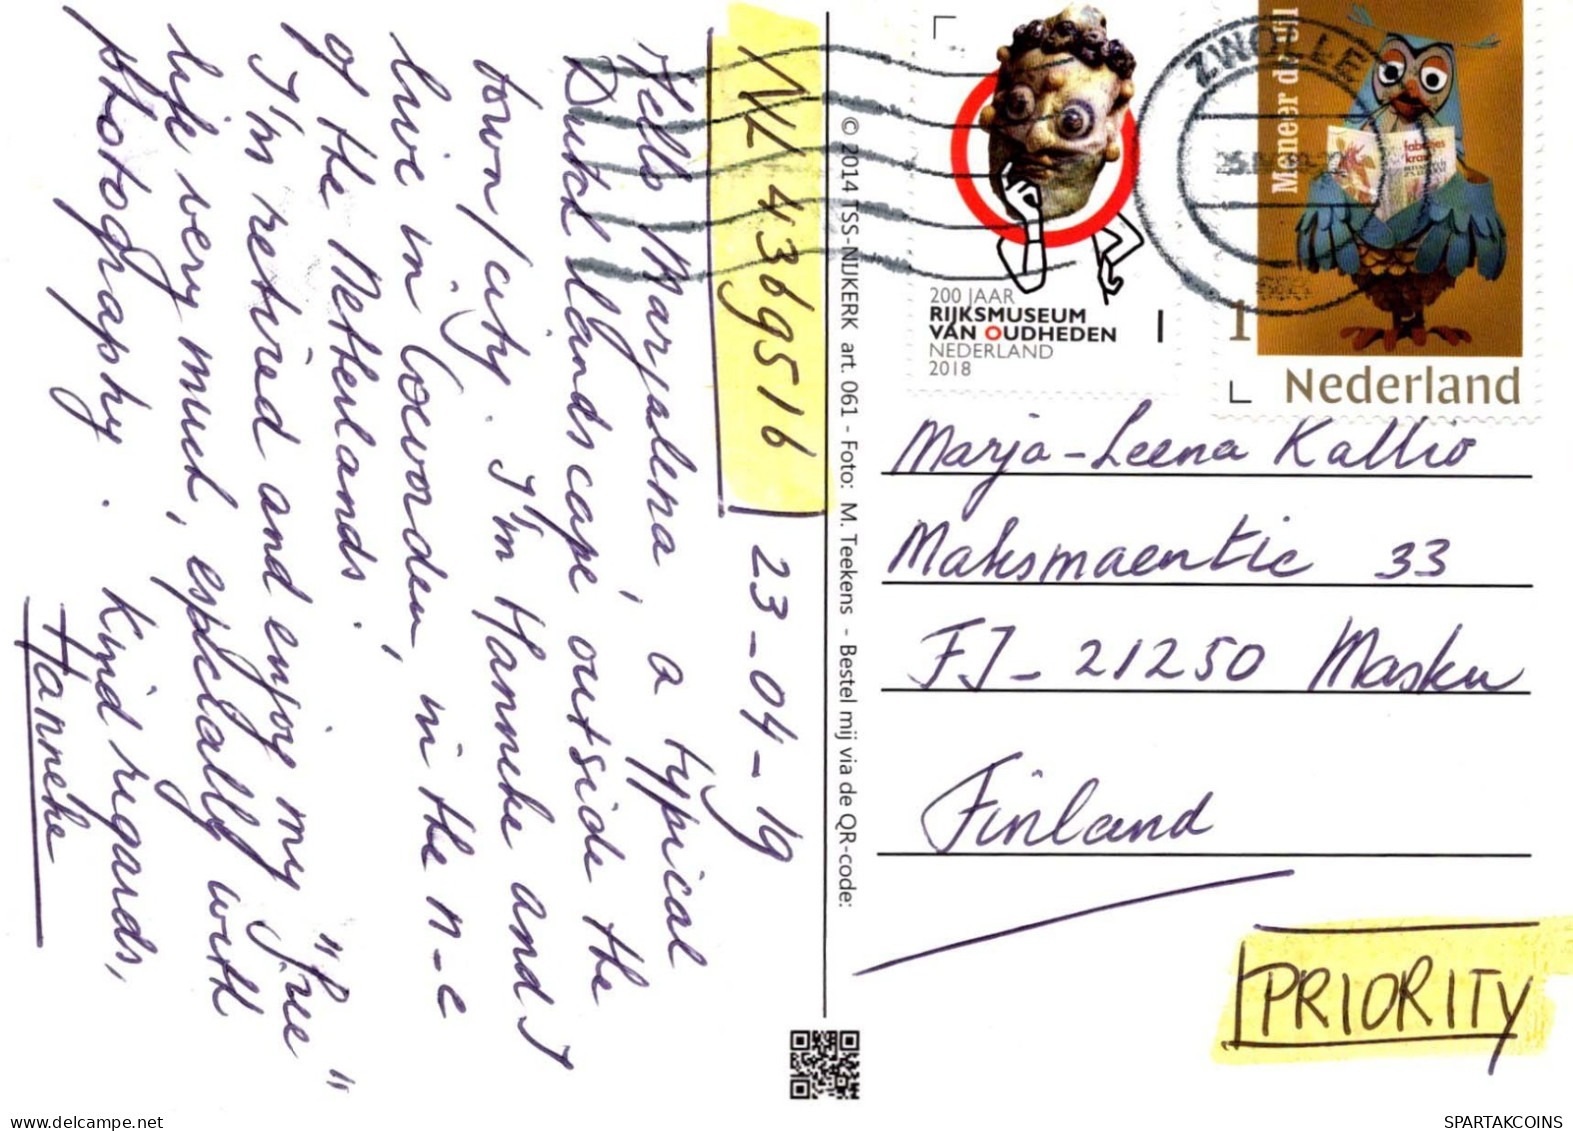 NL 4369516
23-04-19
Hello Marjalena, a typical
Dutch landscape outside the
town/city. I'm Hanneke and I
live in Coevorden, in the n-e
of the Netherlands.
I'm retired and enjoy my "free"
life very much, especially with
photography.
Kind regards,
Hanneke
© 2014 TSS-NIJKERK art. 061 - Foto: M. Teekens - Bestel mij via de QR-code:
200 JAAR
RIJKSMUSEUM
VAN OUDHEDEN
NEDERLAND
2018
1
ZWOLLE
Meneer de Uil
fabeltjes
krant
1
Nederland
Marja-Leena Kallio
Maksmaentie 33
FI-21250 Masku
Finland
PRIORITY
delcampe.net
SPARTAKCOINS